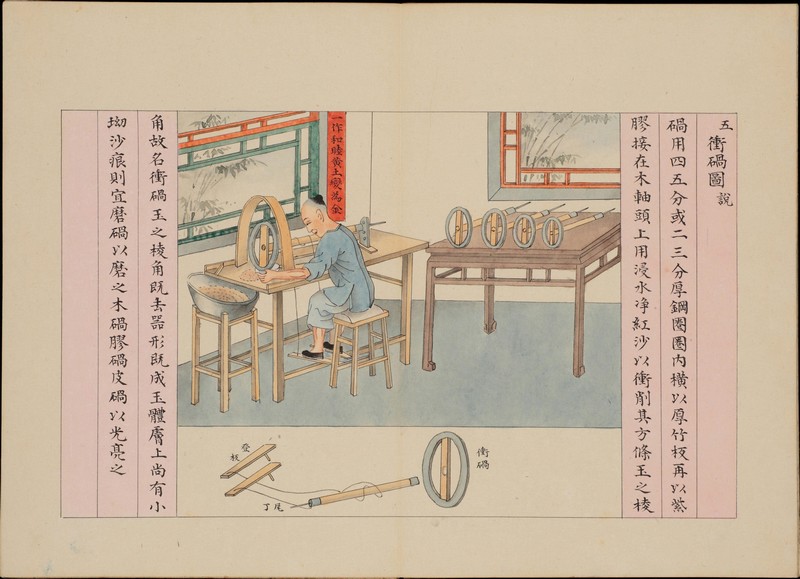 五 衝碢圖說
碢用四五分或二三分厚鋼圈圈內橫以厚竹板再以紫
膠接在木軸頭上用浸水净紅沙以衝削其方條玉之棱
角故名衝碢玉之棱角既去器形既成玉體膚上尚有小
坳沙痕則宜磨碢以磨之木碢膠碢皮碢以光亮之
和睦黃土變為金
衝碢
登板
尾丁